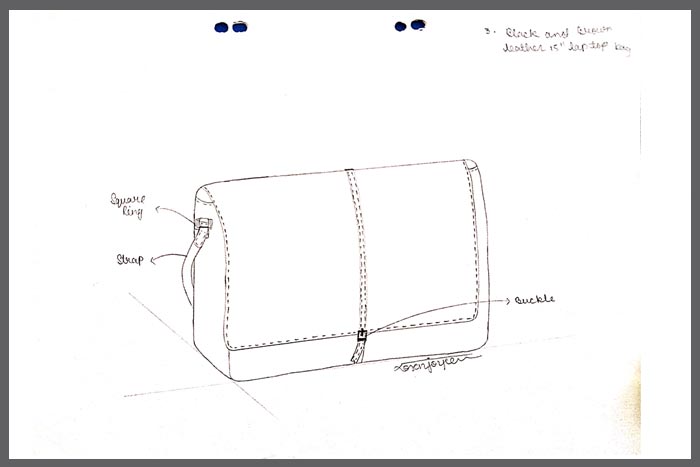 3. Black and Brown
leather 15" laptop bag
Square
Ring
Strap
Buckle